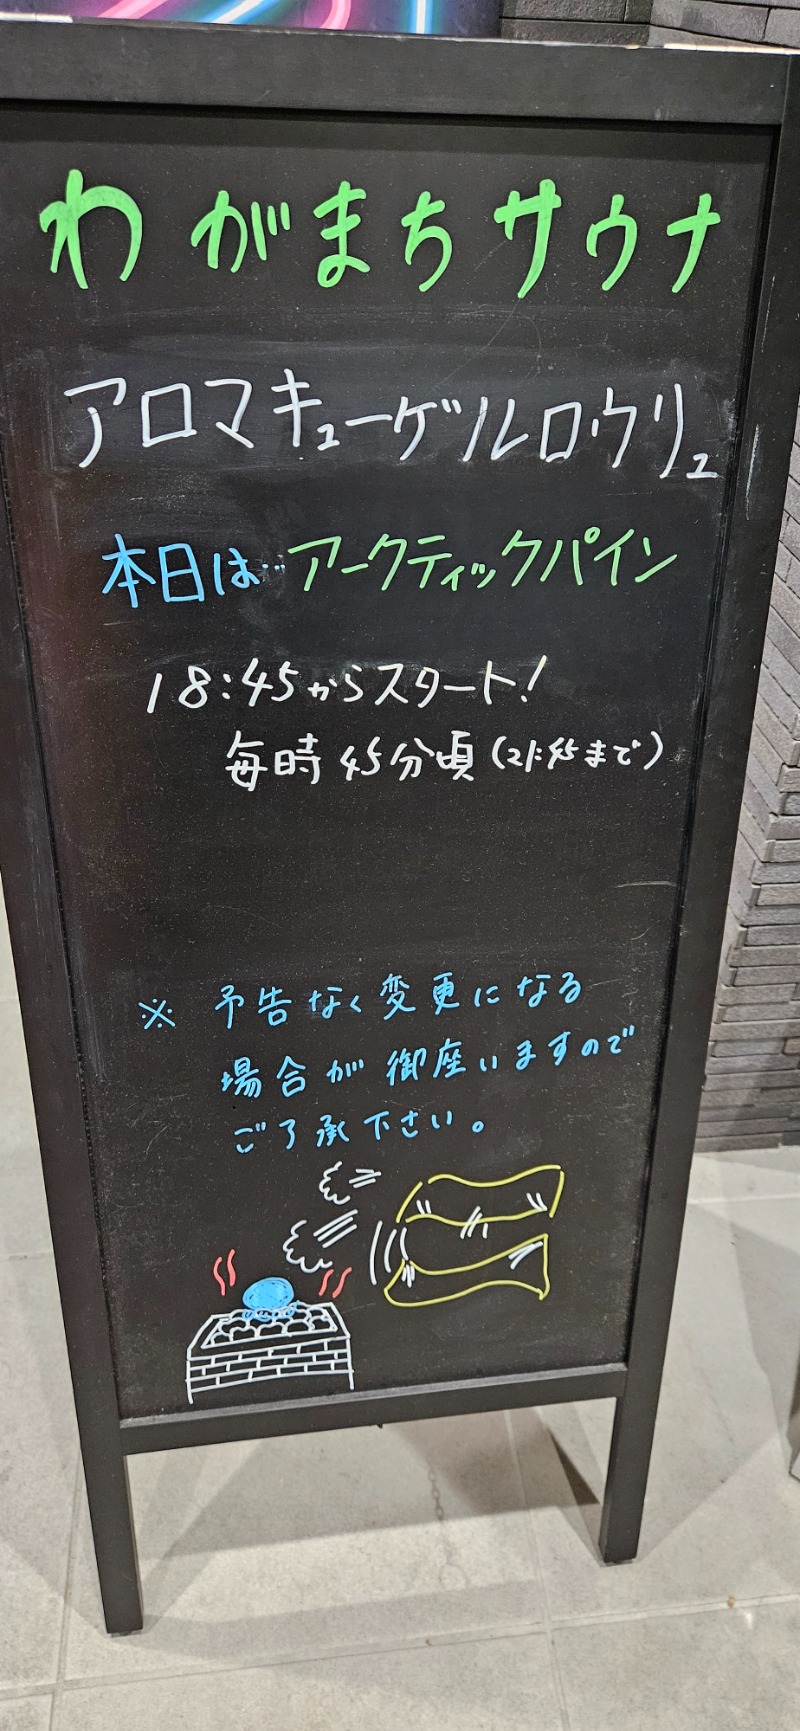 わがまちサウナ
アロマキューゲルロウリュ
本日は…アークティックパイン
18:45からスタート!
毎時45分頃(21:45まで)
※ 予告なく変更になる
場合が御座いますので
ご了承下さい。